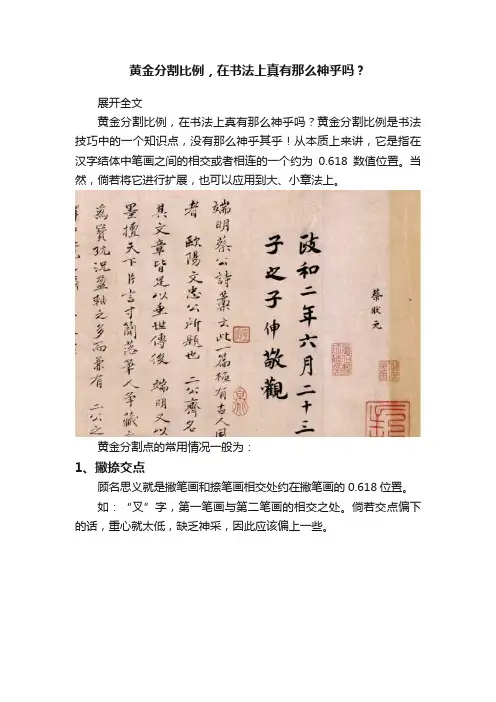 黄金分割比例，在书法上真有那么神乎吗？
展开全文
黄金分割比例，在书法上真有那么神乎吗？黄金分割比例是书法
技巧中的一个知识点，没有那么神乎其乎！从本质上来讲，它是指在
汉字结体中笔画之间的相交或者相连的一个约为 0.618 数值位置。当
然，倘若将它进行扩展，也可以应用到大、小章法上。
蔡狀元
政和二年六月二十三
子之子伸敬觀
端明蔡公詩藁云此一篇極有古人
者 歐陽文忠公所題也 二公齊名
其文章皆足以垂世傳後 端明又以
墨擅天下片言寸簡落筆人爭藏
為寶玩況盈軸之多而兼有 二公之
黄金分割点的常用情况一般为：
1、撇捺交点
顾名思义就是撇笔画和捺笔画相交处约在撇笔画的 0.618 位置。
如：“叉”字，第一笔画与第二笔画的相交之处。倘若交点偏下
的话，重心就太低，缺乏神采，因此应该偏上一些。